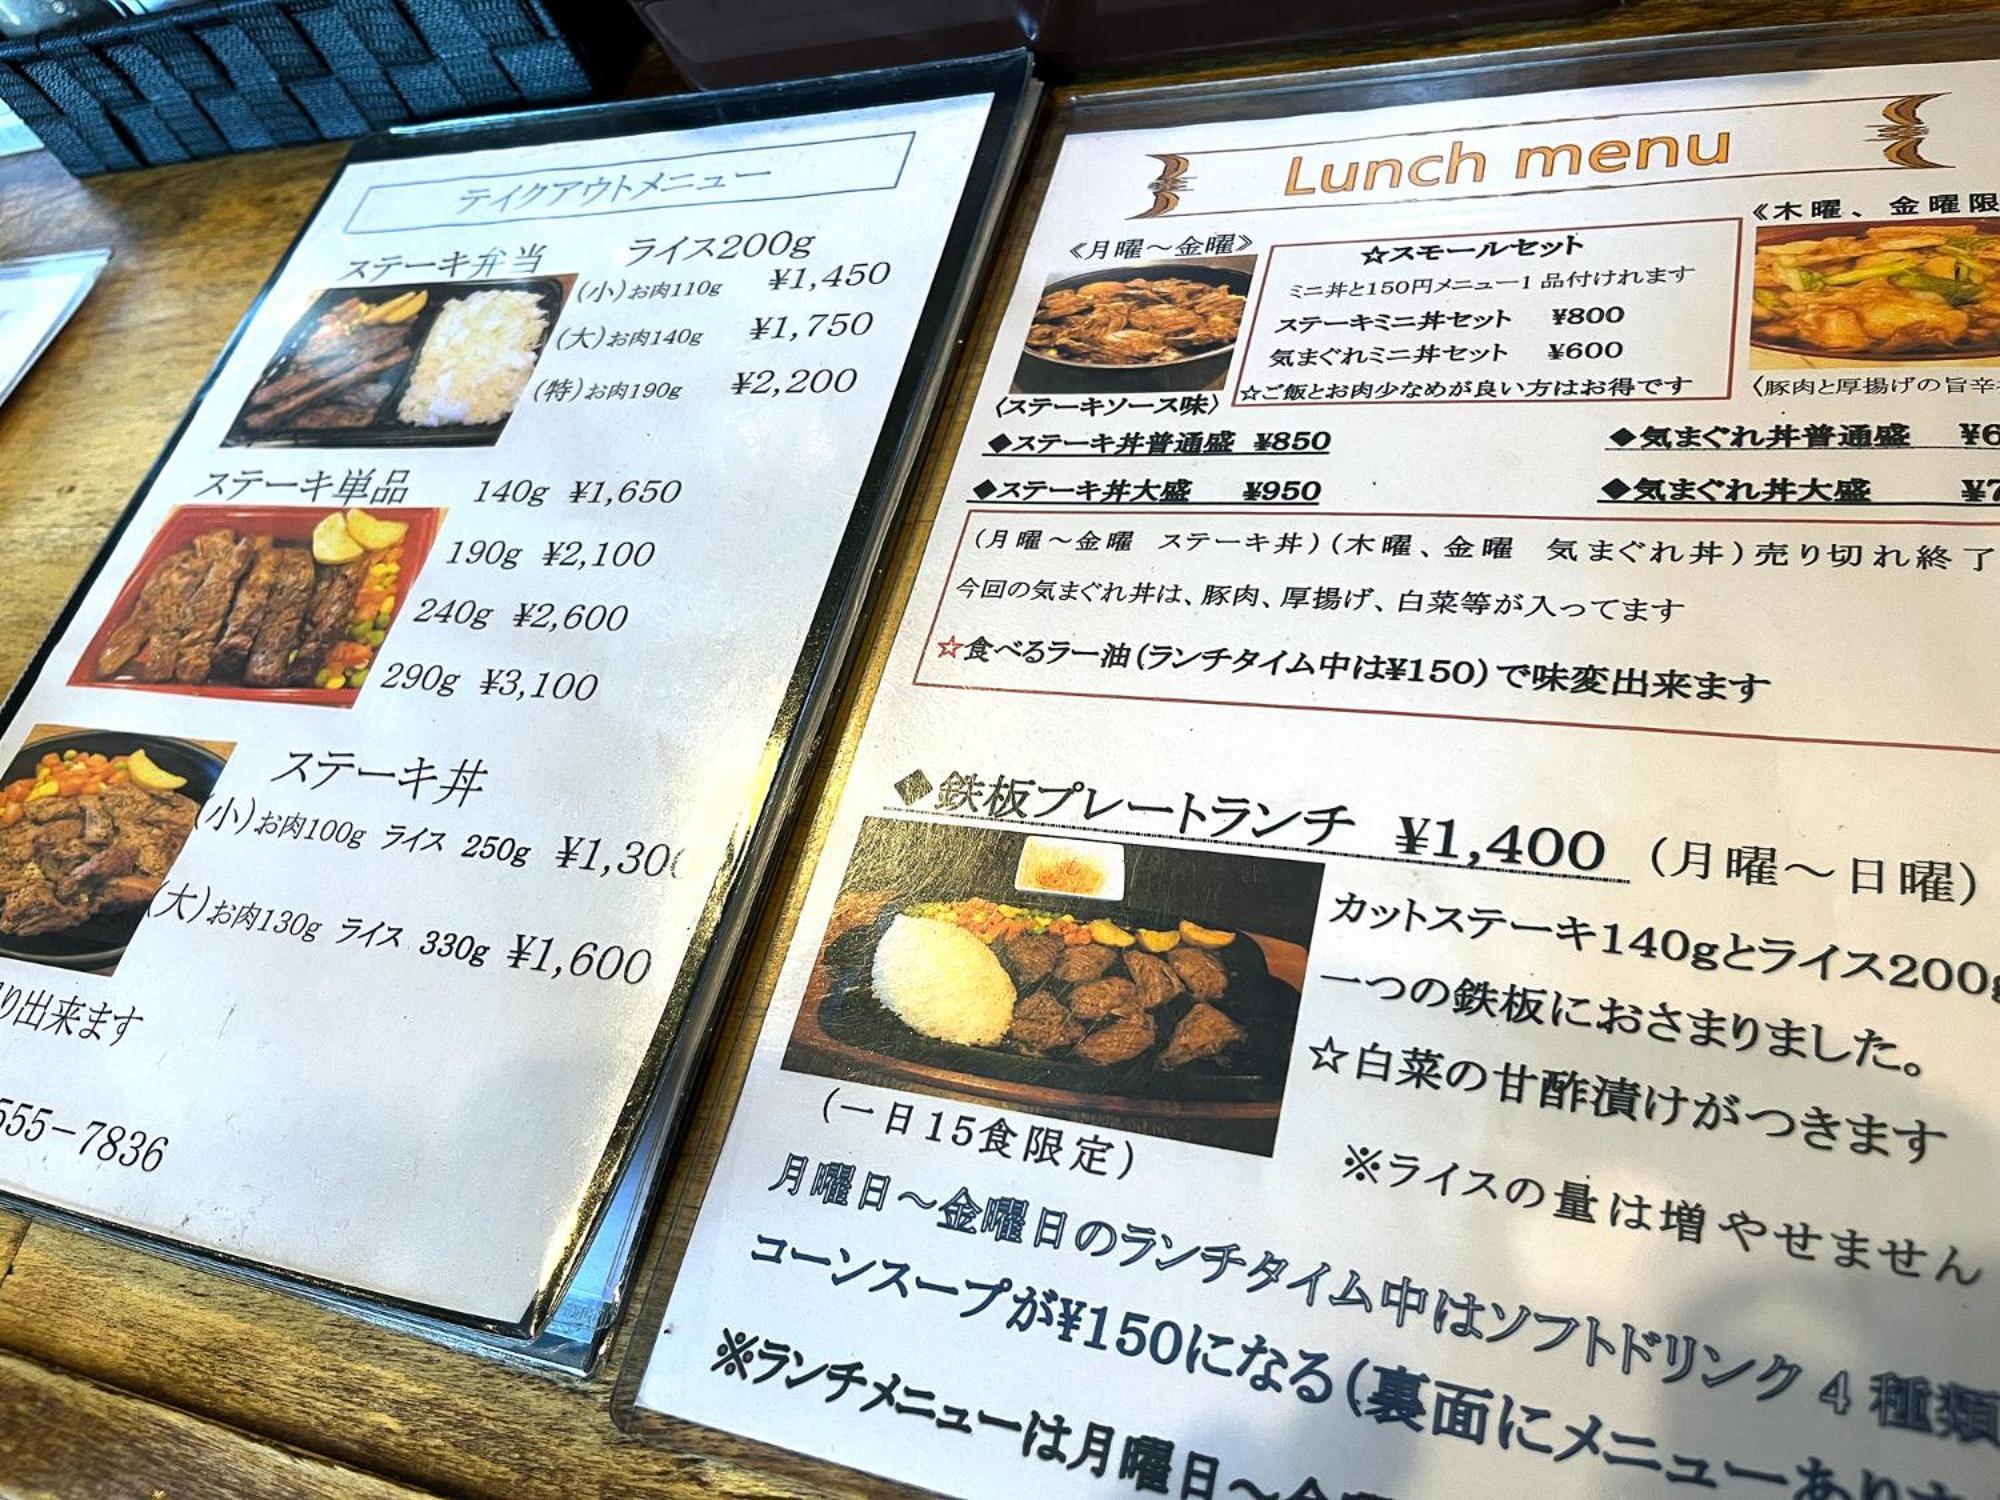 テイクアウトメニュー
ステーキ弁当 ライス200g
(小)お肉110g ¥1,450
(大)お肉140g ¥1,750
(特)お肉190g ¥2,200
ステーキ単品 140g ¥1,650
190g ¥2,100
240g ¥2,600
290g ¥3,100
ステーキ丼
(小)お肉100g ライス 250g ¥1,300
(大)お肉130g ライス 330g ¥1,600
り出来ます
555-7836
Lunch menu
《月曜～金曜》
〈ステーキソース味〉
☆スモールセット
ミニ丼と150円メニュー1品付けれます
ステーキミニ丼セット ¥800
気まぐれミニ丼セット ¥600
☆ご飯とお肉少なめが良い方はお得です
《木曜、金曜限
〈豚肉と厚揚げの旨辛
◆ステーキ丼普通盛 ¥850
◆ステーキ丼大盛 ¥950
◆気まぐれ丼普通盛 ¥6
◆気まぐれ丼大盛 ¥7
(月曜～金曜 ステーキ丼)(木曜、金曜 気まぐれ丼)売り切れ終了
今回の気まぐれ丼は、豚肉、厚揚げ、白菜等が入ってます
☆食べるラー油(ランチタイム中は¥150)で味変出来ます
◆鉄板プレートランチ ¥1,400 (月曜～日曜)
カットステーキ140gとライス200g
一つの鉄板におさまりました。
☆白菜の甘酢漬けがつきます
※ライスの量は増やせません
(一日15食限定)
月曜日～金曜日のランチタイム中はソフトドリンク4種類
コーンスープが¥150になる(裏面にメニューあり
※ランチメニューは月曜日～